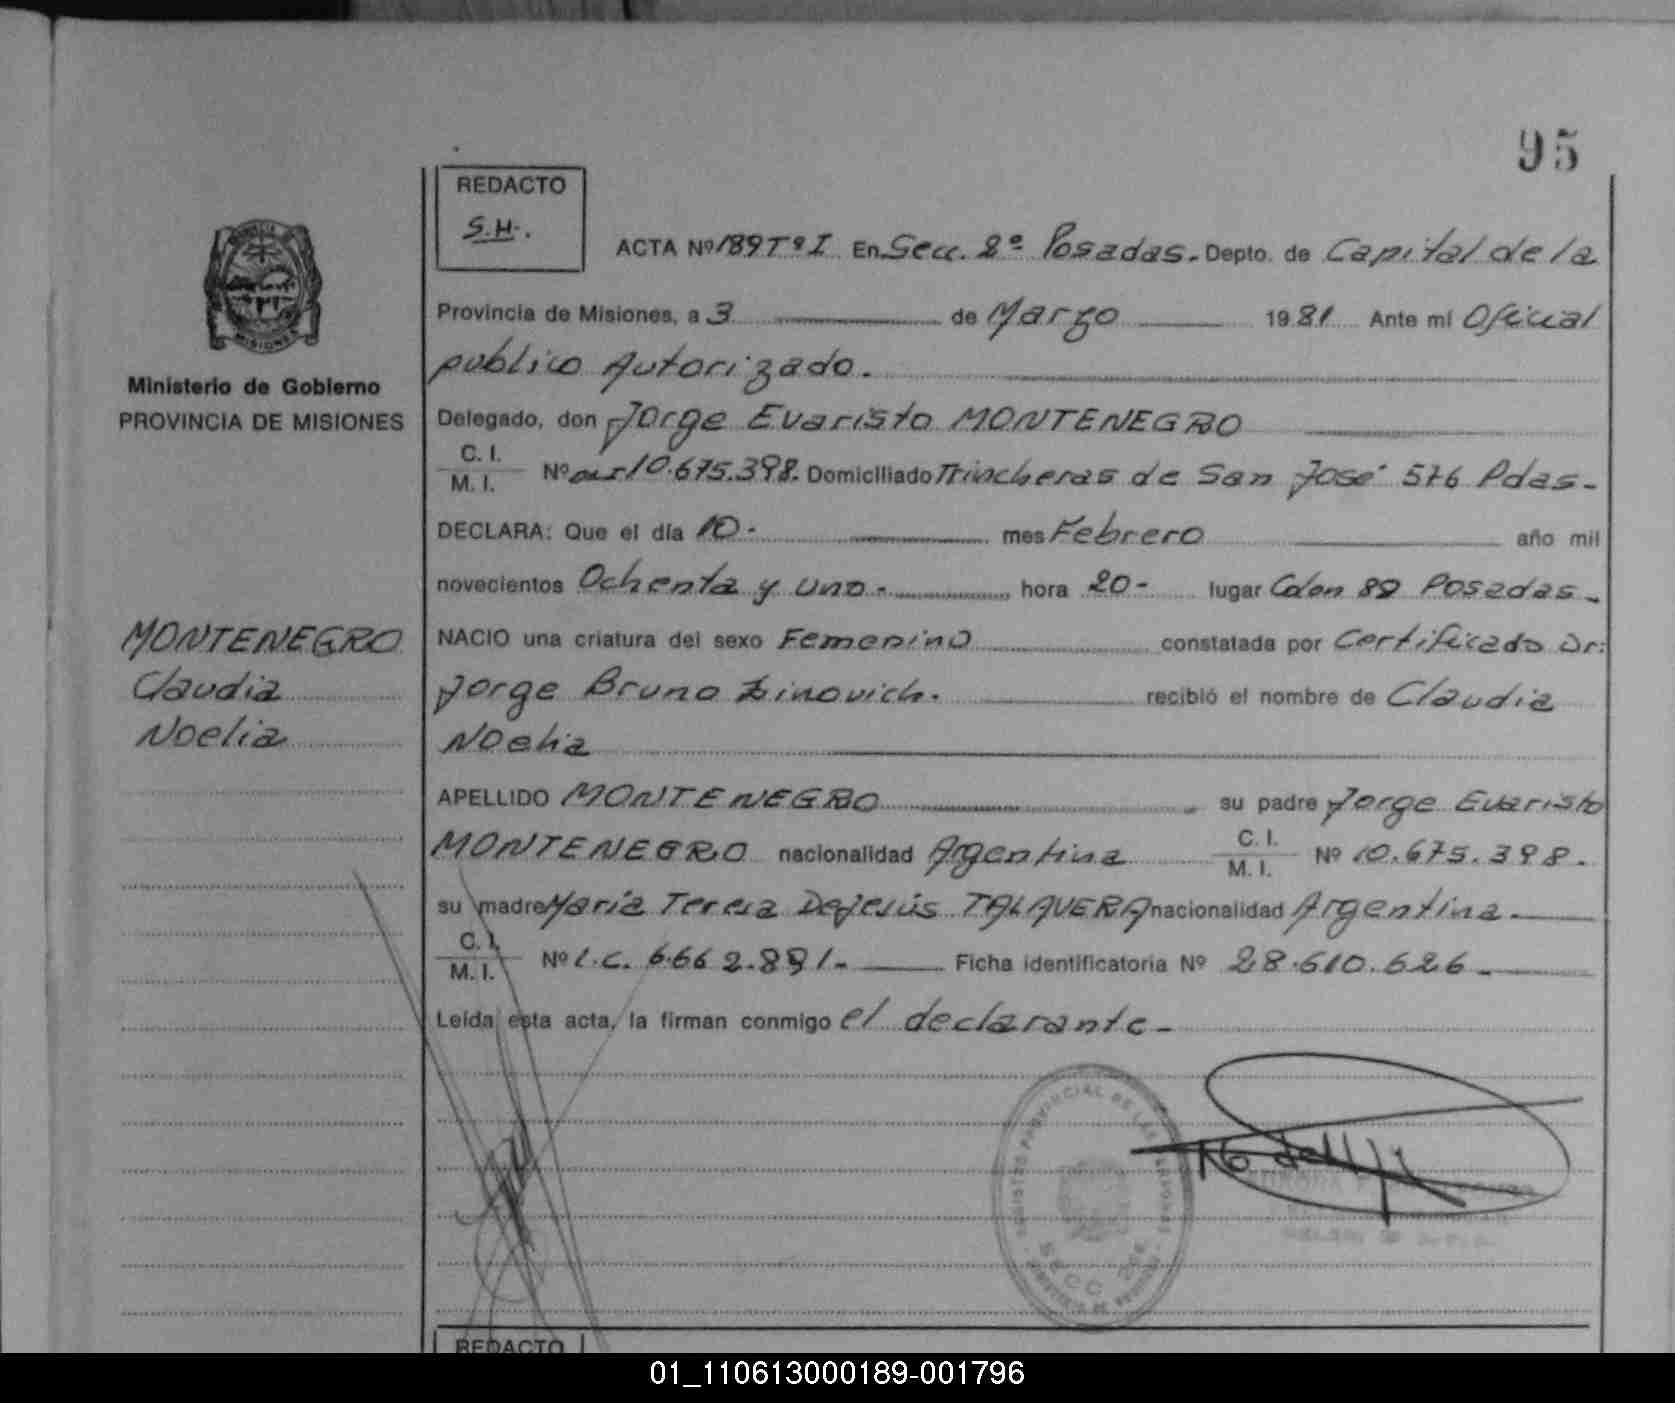 95
REDACTO
S.H.
ACTA Nº 189 Tº I En Secc. 2º Posadas. Depto. de Capital de la
Provincia de Misiones, a 3 de Marzo 1981 Ante mi Oficial
publico Autorizado.
Ministerio de Gobierno
PROVINCIA DE MISIONES
Delegado, don Jorge Evaristo MONTENEGRO
C. I.
M. I. Nº 10.675.398. Domiciliado Trincheras de San José 576 Pdas-
DECLARA: Que el día 10- mes Febrero año mil
novecientos Ochenta y uno- hora 20- lugar Colon 89 Posadas-
MONTENEGRO
Claudia
Noelia
NACIO una criatura del sexo Femenino constatada por Certificado Dr:
Jorge Bruno Zinovich. recibió el nombre de Claudia
Noelia
APELLIDO MONTENEGRO su padre Jorge Evaristo
MONTENEGRO nacionalidad Argentina C. I.
M. I. Nº 10.675.398.
su madre María Teresa Dejesús TALAVERA nacionalidad Argentina-
C. I.
M. I. Nº L.C. 6.662.891- Ficha identificatoria Nº 28.610.626-
Leída esta acta, la firman conmigo el declarante-
REGISTRO PROVINCIAL DE LAS PERSONAS
SECC 2da
REDACTO
01_110613000189-001796